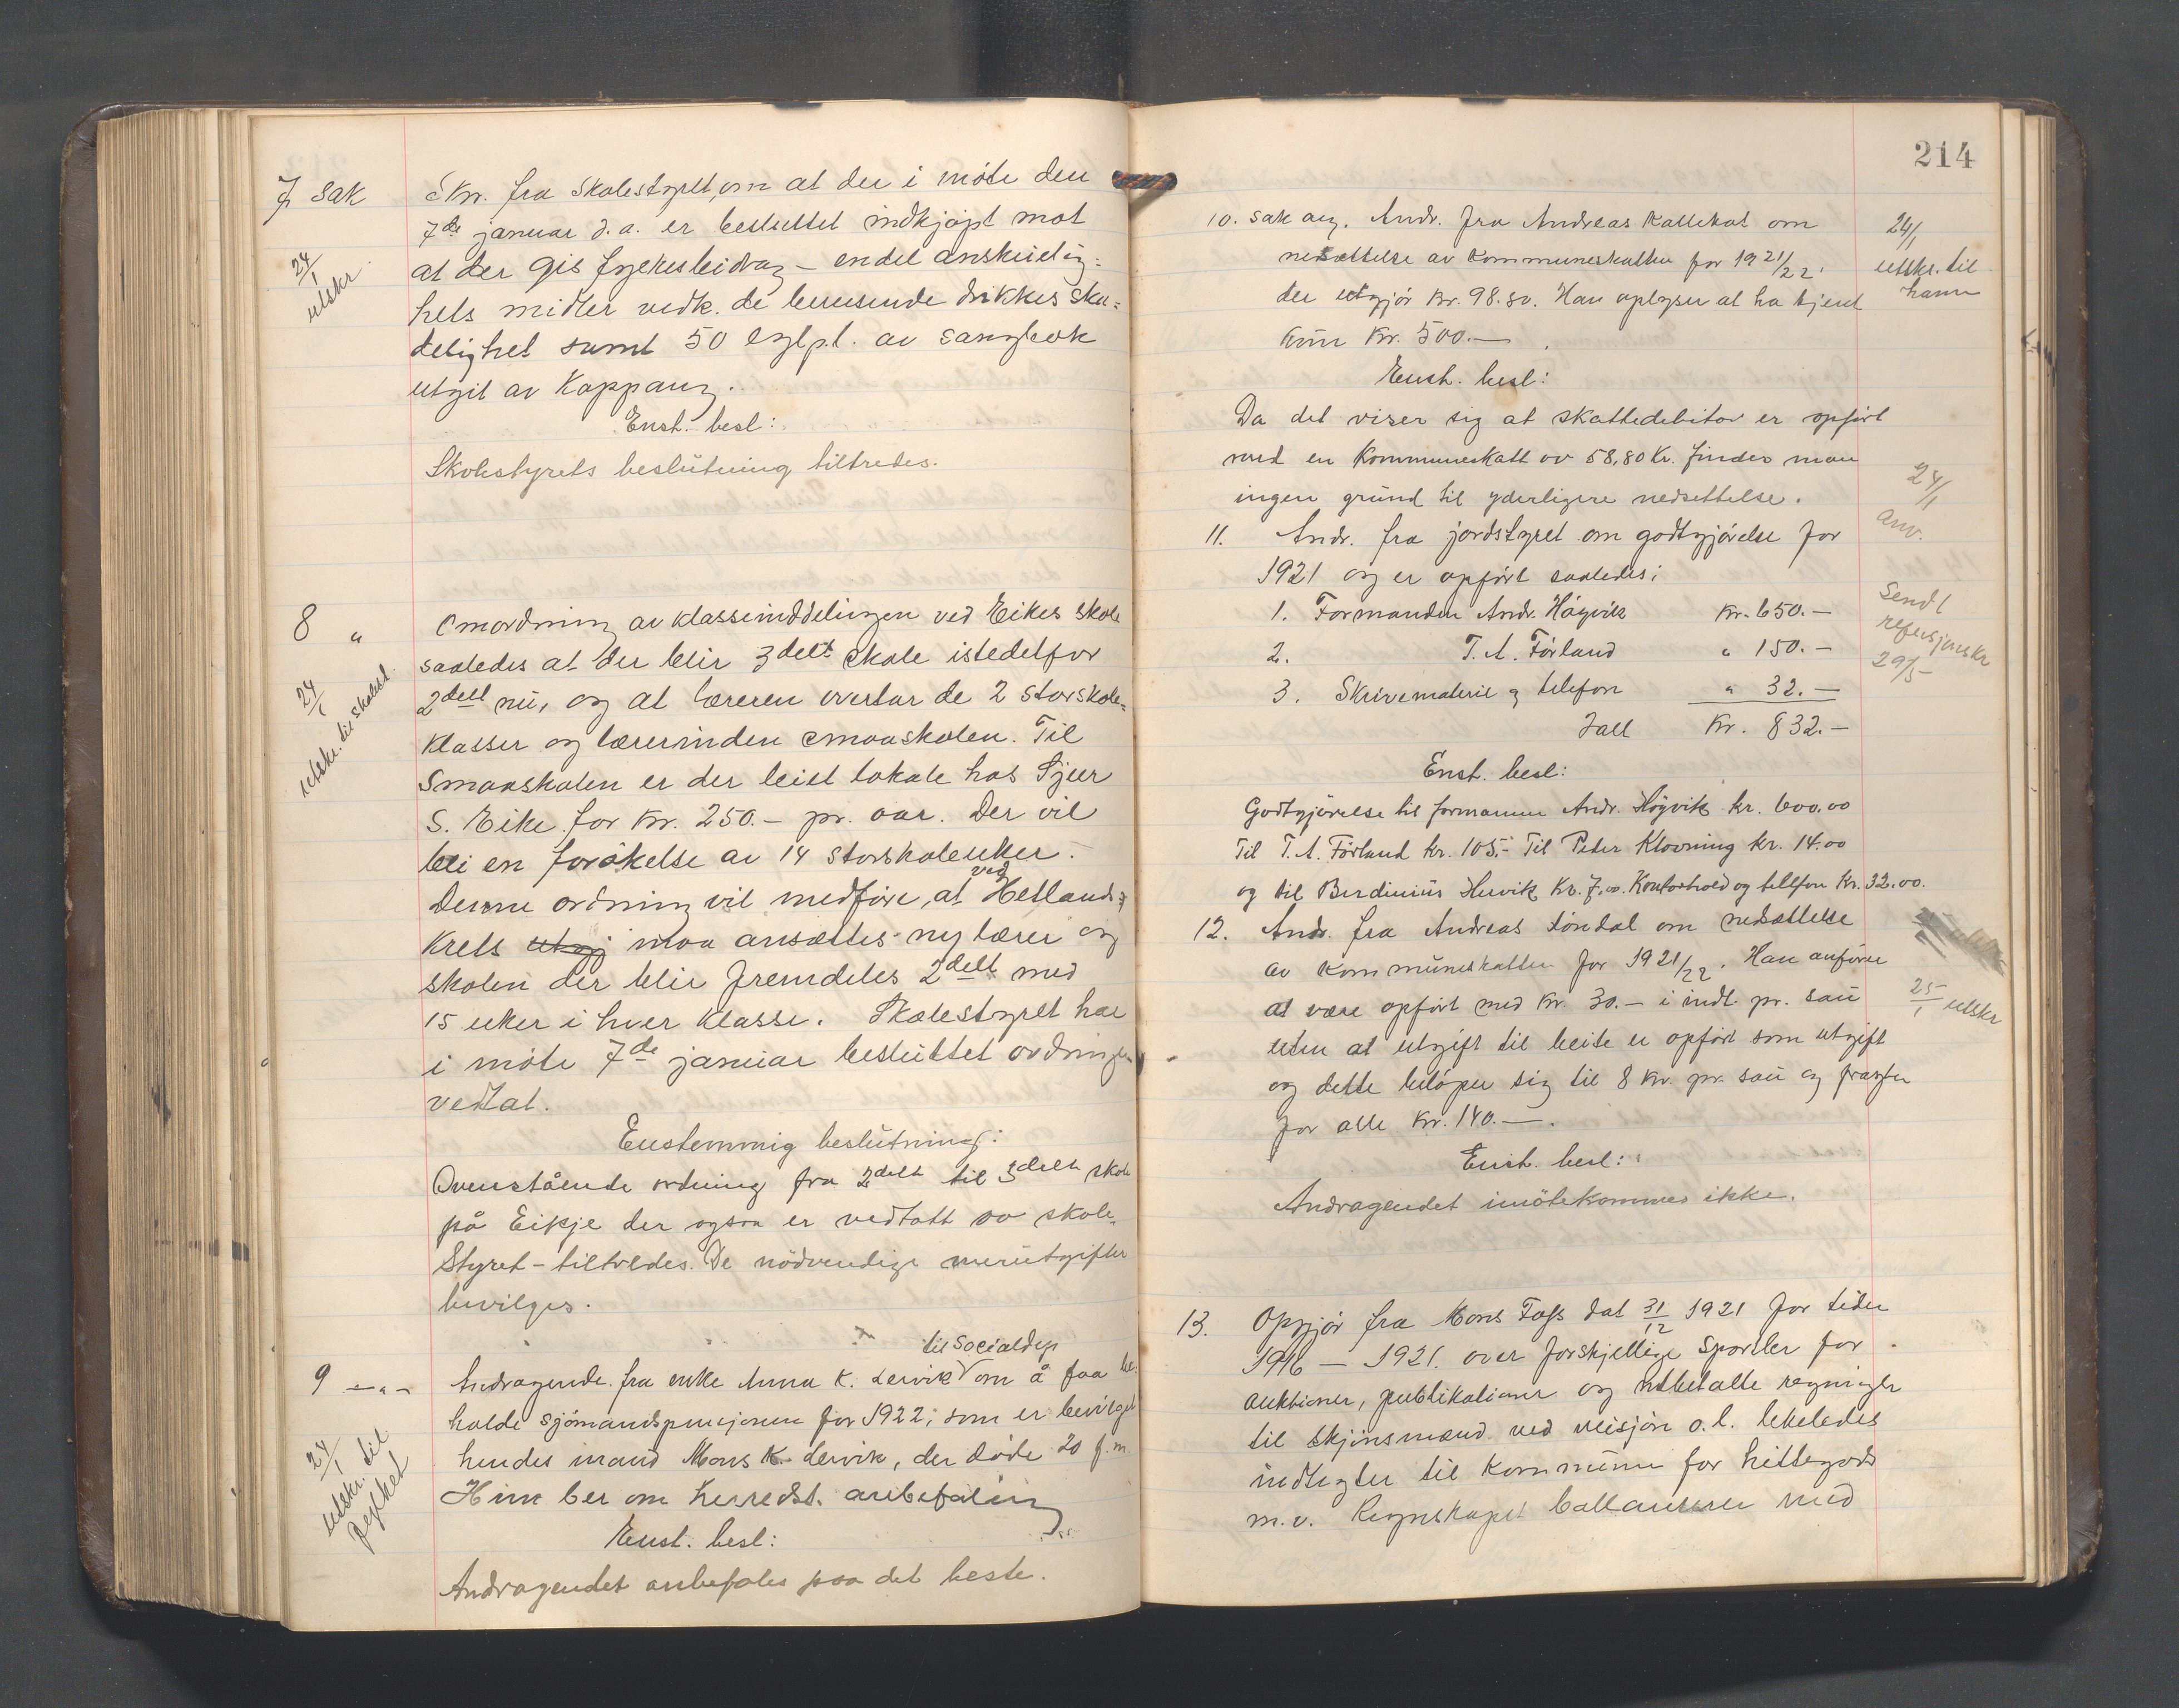 7 sak
Skr. fra skolestyret, om at der i möte den
7de januar d.a. er besluttet indkjøpt mot
24/1
utskr.
at der gis fylkesbidrag – endel anskuelig=
hets midler vedk. de berusende drikkes ska=
delighet samt 50 expl. av sangbok
utgit av Kappang.
Enst. besl:
Skolestyrets beslutning tiltredes.
8 "
Omordning av klasseinddelingen ved Eikes skole
saaledes at der blir 3delt skole istedetfor
24/1
utskr. til skolest.
2delt nu, og at læreren overtar de 2 storskole=
klasser og lærerinden smaaskolen. Til
Smaaskolen er der leiet lokale hos Sjur
S. Eike for kr. 250.– pr. aar. Der vil
bli en forökelse av 14 storskoleuker.
Denne ordning vil medföre, at ved Hetlands
krets maa ansættes ny lærer og
skolen der blir fremdeles 2delt med
15 uker i hver klasse. Skolestyret har
i möte 7de januar besluttet ordningen
vedtat.
Enstemmig beslutning:
Ovenstående ordning fra 2delt til 3delt skole
på Eikje der ogsaa er vedtatt av skole=
Styret – tiltredes. De nödvendige merutgifter
bevilges.
9 –"–
til Socialdep
Andragende fra enke Anna K. Lervik om å faa be=
holde sjömandspensjonen for 1922; som er bevilget
24/1
utskr. til
hendes mand Mons K. Lervik, der döde 20 f.m.
Hun ber om herredst. anbefaling
Enst. besl:
Andragendet anbefales paa det beste.
214
10. sak ang. Andr. fra Andreas Kallekot om
nedsættelse av kommuneskatten for 1921/22
der utgjör kr. 98.80. Han oplyser at ha tjent
kun kr. 500.—
24/1
utskr. til
ham
Enst. besl:
Da det viser sig at skattedebitor er opfört
med en kommuneskatt av 58,80 kr. finder man
ingen grund til yderligere nedsettelse.
24/1
anv.
11. Andr. fra jordstyret om godtgjörelse for
1921 og er opfört saaledes:
1. Formanden Andr. Högvik kr. 650.–
2. T. A. Förland " 150.–
3. Skrivematerie og telefon " 32.—
Jalt kr. 832.–
Sendt
refusjonskr
29/5
Enst. besl:
Godtgjörelse til formannen Andr. Högvik kr. 600.00
Til T. A. Förland kr. 105.– Til Peder Klovning kr. 14.00
og til Berdinius Hervik kr. 7.00. Kontorhold og tellefon kr. 32.00.
12. Andr. fra Andreas Töndal om nedsættelse
av kommuneskatten for 1921/22. Han anförer
at være opfört med kr. 30.– i indt. pr. sau
uten at utgift til beite er opfört som utgift
og dette belöper sig til 8 kr. pr. sau og
for alle kr. 140.—.
25/1 utskr
Enst. besl:
Andragendet imötekommes ikke.
13. Opgjör fra Mons Foss dat 31/12 1921 for tiden
1916 – 1921. over forskjellige Sportler for
auktioner, publikationer og utbetalte regninger
til skjönsmænd ved veisjön o.l. likeledes
indtegter til kommunen for hittegods
m.v. Regnskapet ballanserer med